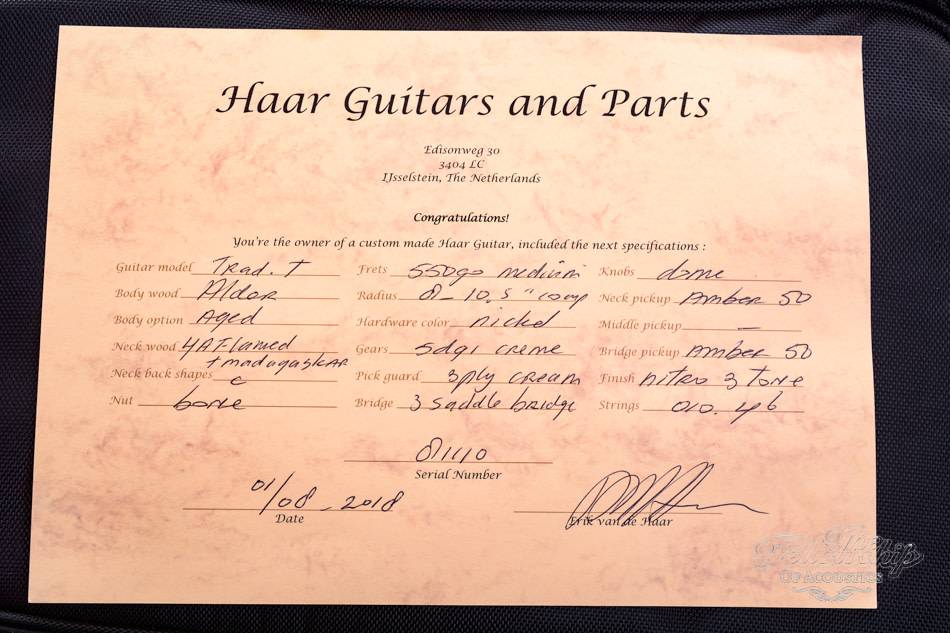 Haar Guitars and Parts
Edisonweg 30
3404 LC
IJsselstein, The Netherlands
Congratulations!
You're the owner of a custom made Haar Guitar, included the next specifications :
Guitar model Trad. T Frets 55090 medium Knobs dome
Body wood Alder Radius 8-10.5" comp Neck pickup Amber 50
Body option Aged Hardware color nickel Middle pickup –
Neck wood 4AFlamed Gears sdg1 creme Bridge pickup Amber 50
+ madagaskar
Neck back shapes C Pick guard 3ply cream Finish nitro 3 tone
Nut bone Bridge 3 saddle bridge Strings 010. 46
81110
Serial Number
01/08 - 2018
Date Erik van de Haar
OF ACOUSTICS